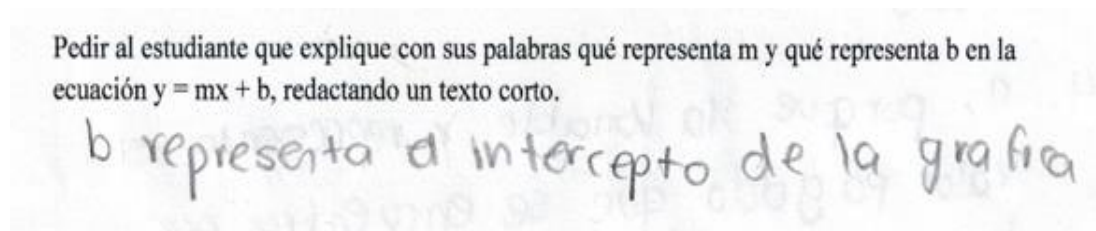 Pedir al estudiante que explique con sus palabras qué representa m y qué representa b en la
ecuación y = mx + b, redactando un texto corto.
b representa el intercepto de la grafica